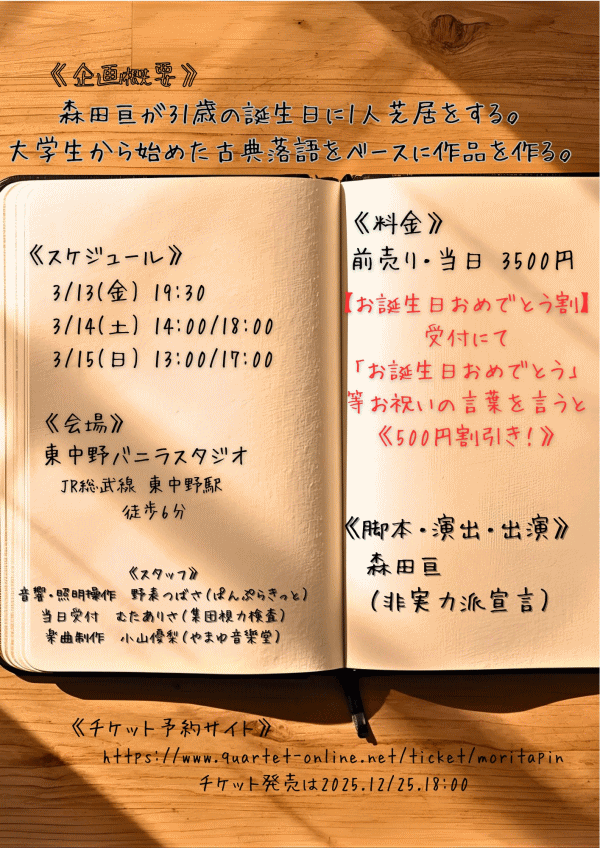 《企画概要》
森田亘が31歳の誕生日に1人芝居をする。
大学生から始めた古典落語をベースに作品を作る。
《スケジュール》
3/13(金) 19:30
3/14(土) 14:00/18:00
3/15(日) 13:00/17:00
《会場》
東中野バニラスタジオ
JR総武線 東中野駅
徒歩6分
《スタッフ》
音響・照明操作 野表つばさ(ぱんぷらきっと)
当日受付 むたありさ(集団視力検査)
楽曲制作 小山優梨(やまゆ音楽堂)
《料金》
前売り・当日 3500円
【お誕生日おめでとう割】
受付にて
「お誕生日おめでとう」
等お祝いの言葉を言うと
《500円割引き!》
《脚本・演出・出演》
森田亘
(非実力派宣言)
《チケット予約サイト》
https://www.quartet-online.net/ticket/moritapin
チケット発売は2025.12/25.18:00